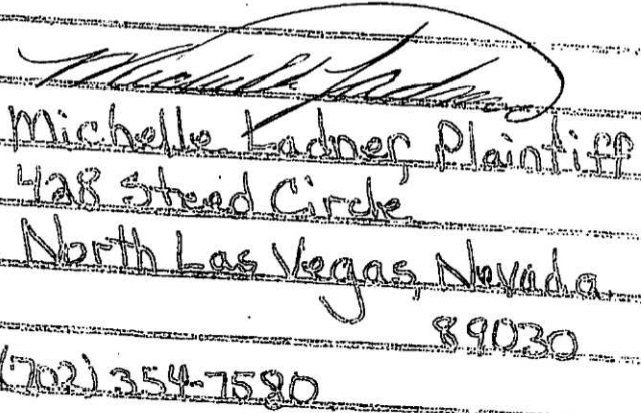 Michelle Ladner
Michelle Ladner, Plaintiff
428 Stead Circle
North Las Vegas, Nevada
89030
(702) 354-7580